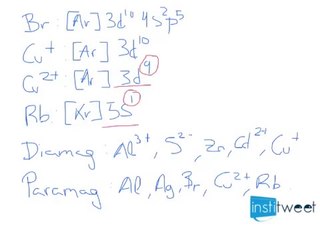 Br: [Ar] 3d¹⁰ 4s²p⁵
Cu⁺ [Ar] 3d¹⁰
Cu²⁺: [Ar] 3d⁹
Rb: [Kr] 5S¹
Diamag: Al³⁺, S²⁻, Zn, Cd²⁺, Cu⁺
Paramag: Al, Ag, Br, Cu²⁺, Rb
institweet